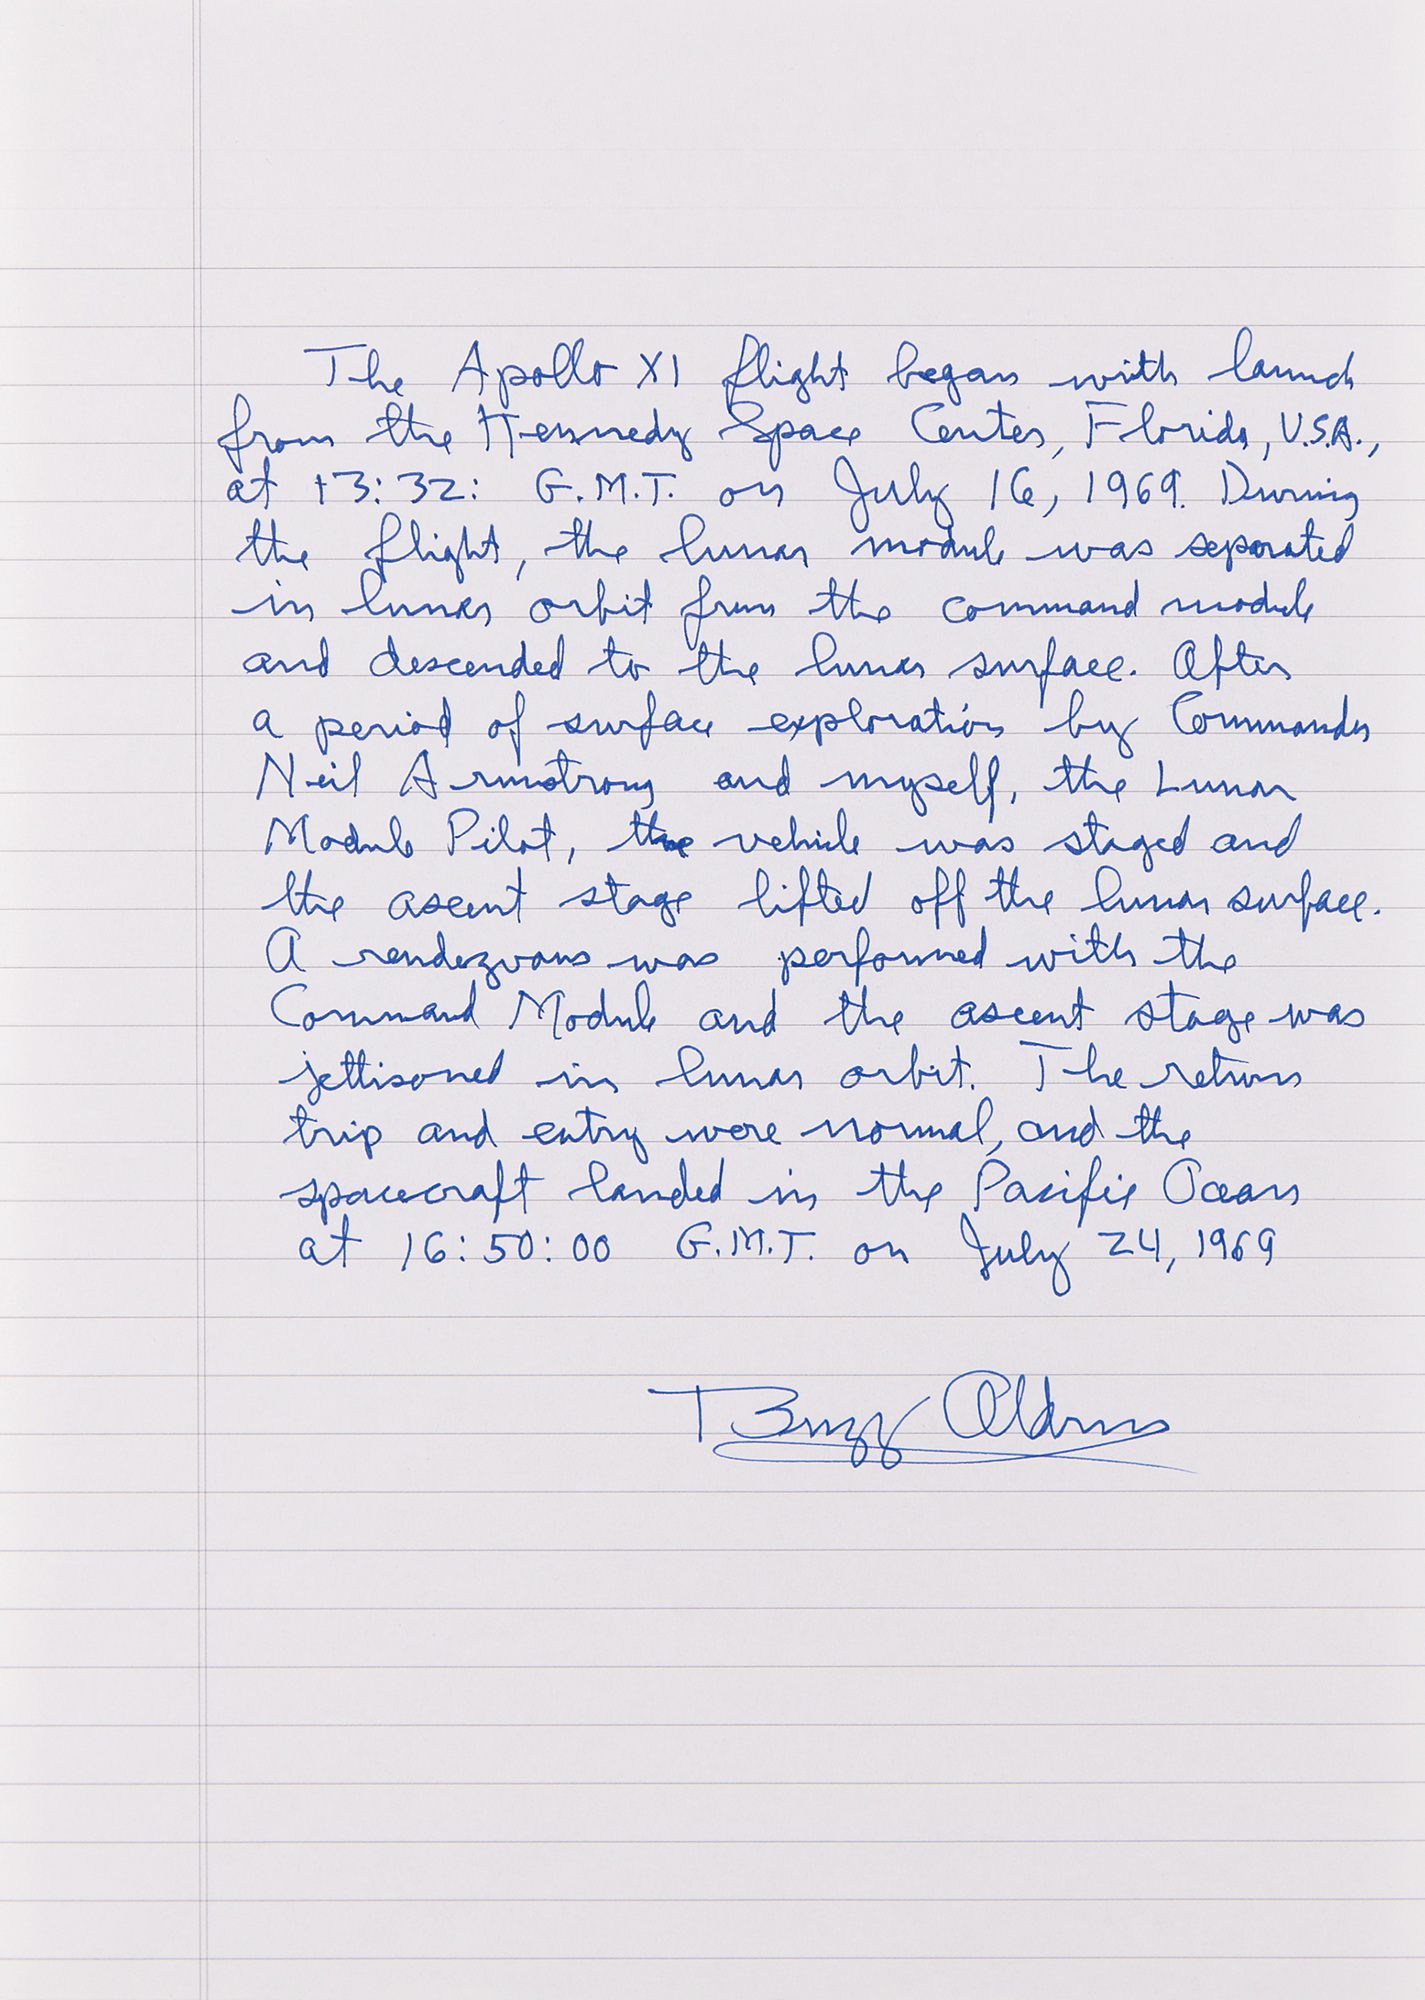 The Apollo XI flight began with launch
from the Kennedy Space Center, Florida, U.S.A.,
at 13:32: G.M.T. on July 16, 1969. During
the flight, the lunar module was separated
in lunar orbit from the command module
and descended to the lunar surface. After
a period of surface exploration by Commander
Neil Armstrong and myself, the Lunar
Module Pilot, the vehicle was staged and
the ascent stage lifted off the lunar surface.
A rendezvous was performed with the
Command Module and the ascent stage was
jettisoned in lunar orbit. The return
trip and entry were normal, and the
spacecraft landed in the Pacific Ocean
at 16:50:00 G.M.T. on July 24, 1969
Buzz Aldrin